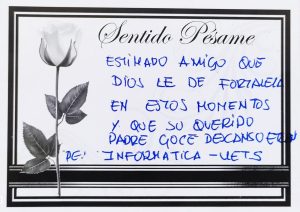 Sentido Pésame
ESTIMADO AMIGO QUE
DIOS LE DE FORTALEZA
EN ESTOS MOMENTOS
Y QUE SU QUERIDO
PADRE GOCE DESCANSO ETERN
DE: INFORMATICA - UETS